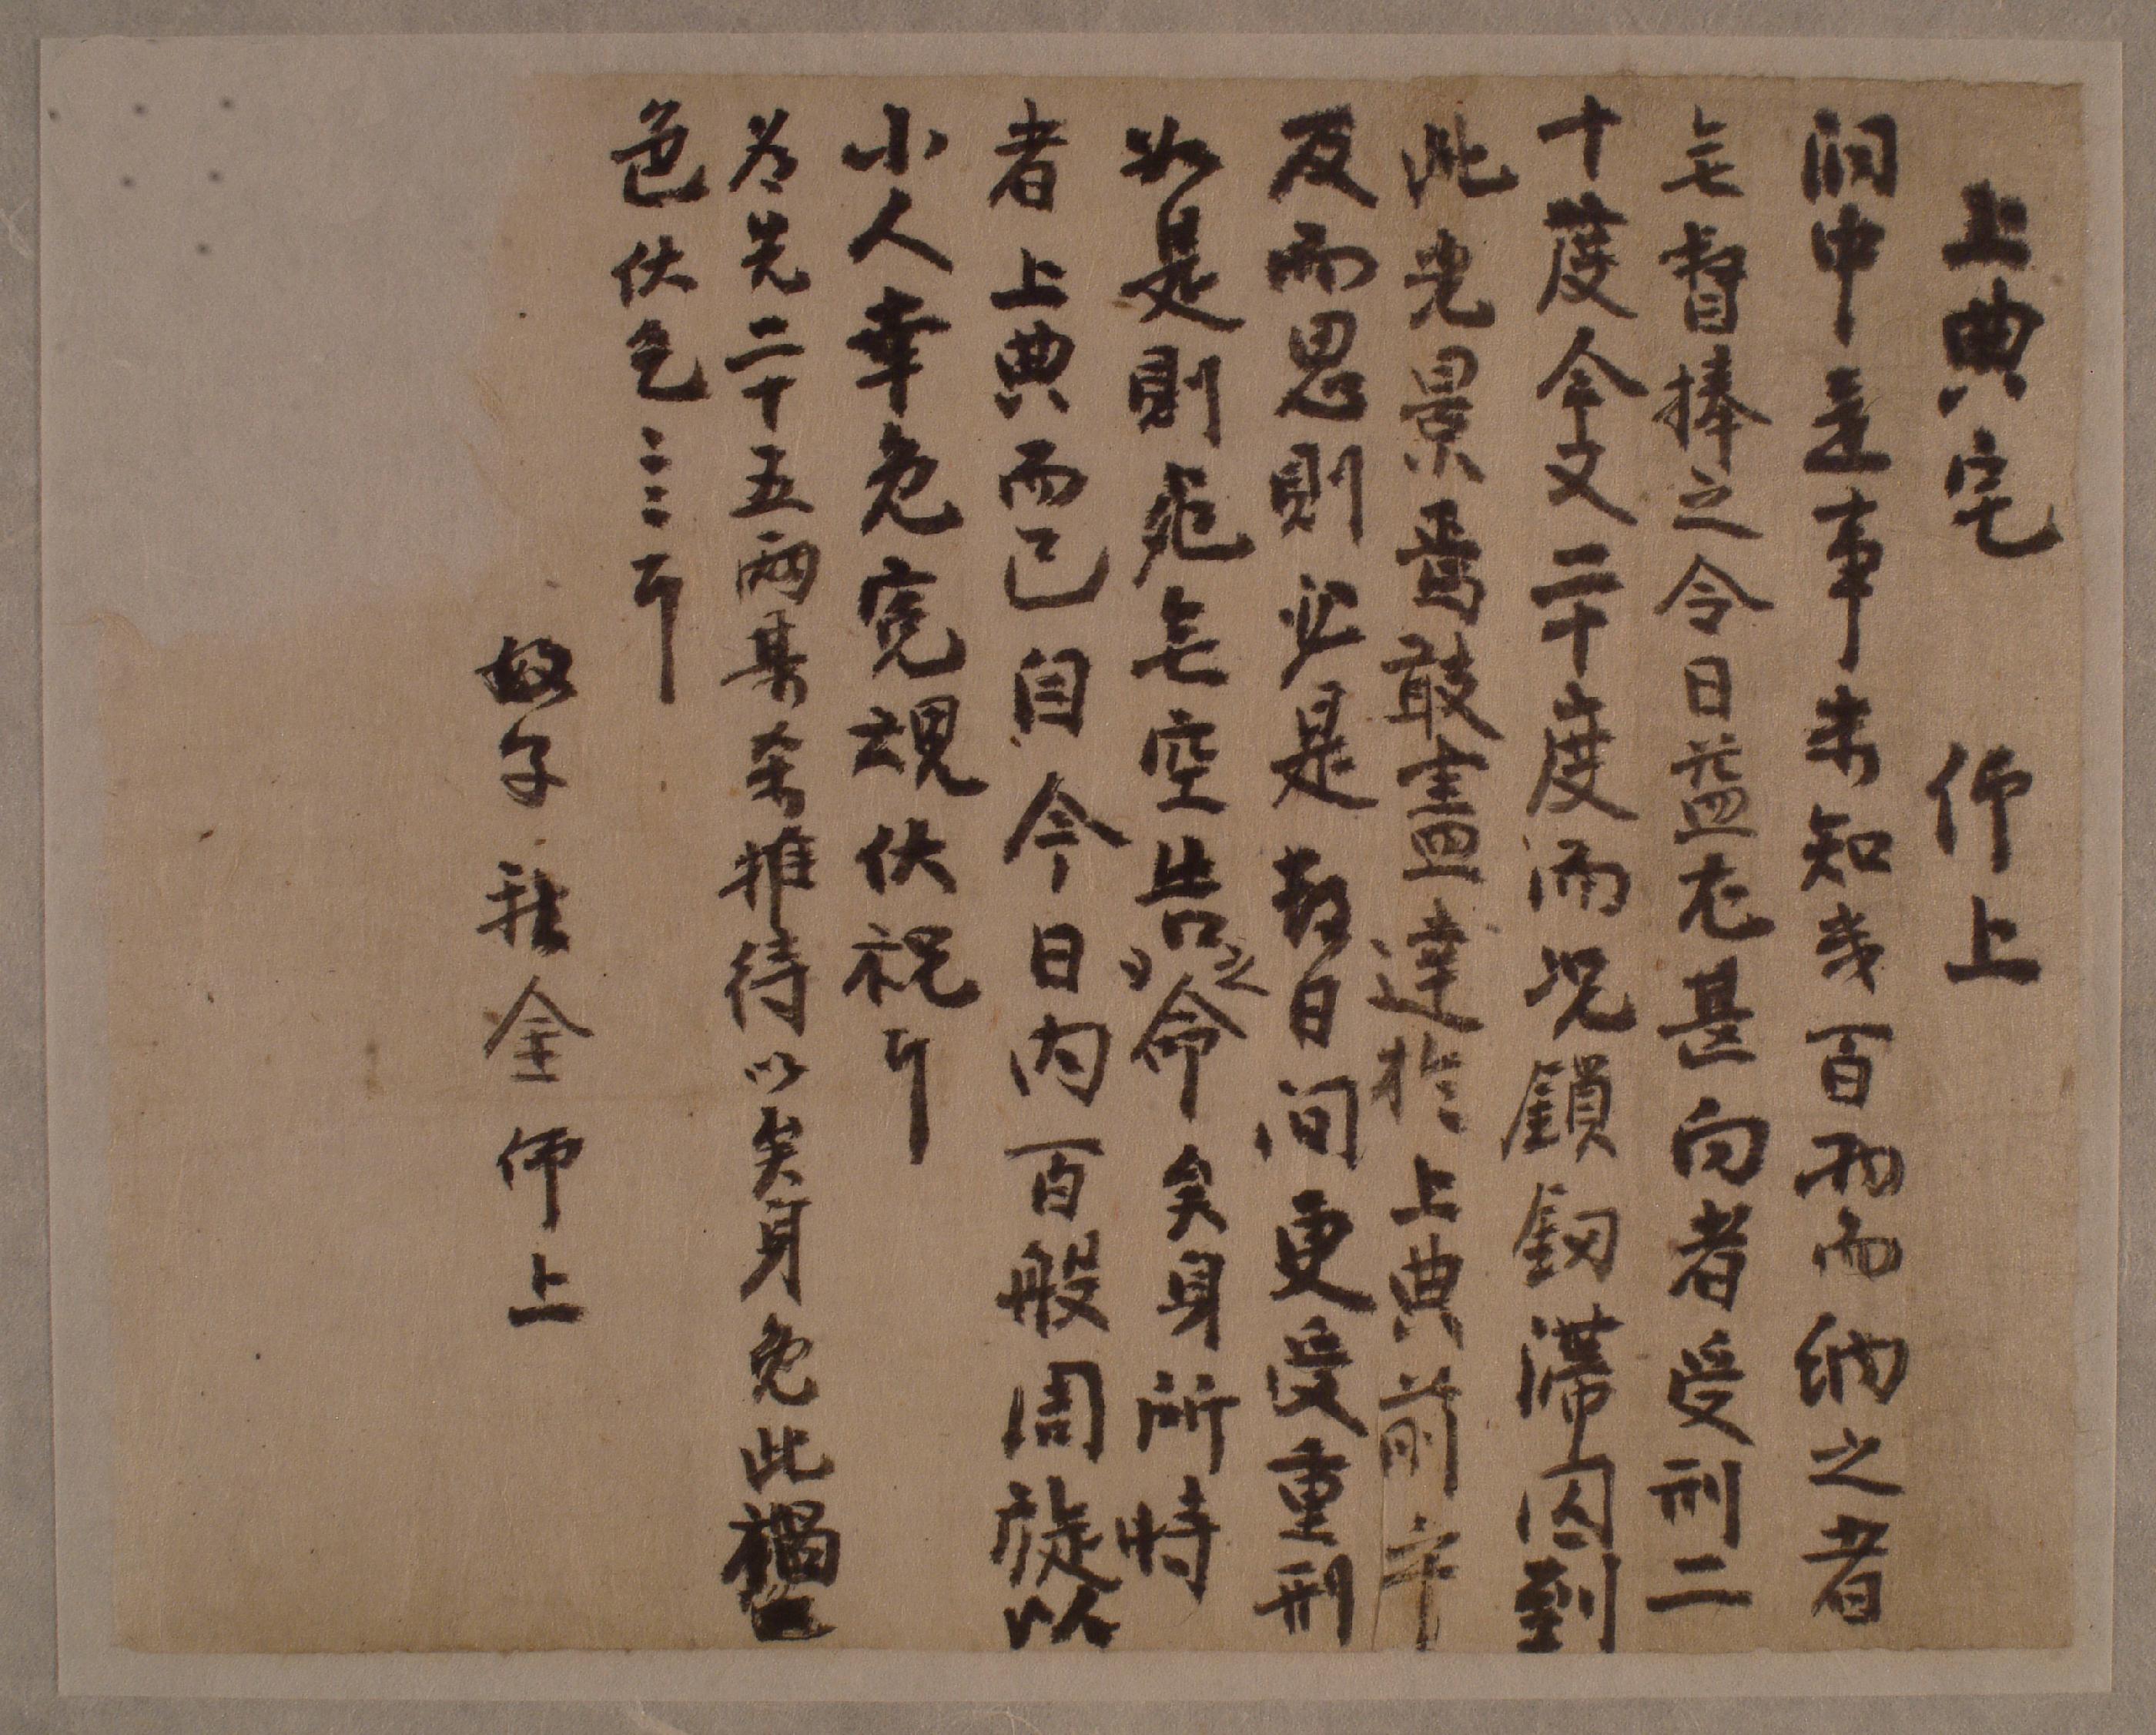 上典宅 伻上
洞中是事未知幾百兩而納之者
無督捧之令日益尤甚向者受刑二
十度今又二十度而況鎖鈒滯囚到
此光景焉敢盡達於 上典前乎
反而思則必是數日間更受重刑
如是則死無空告之命矣身所時
者 上典而已自今日内百般周旋以
小人幸免寃魂伏祝耳
爲先二十五兩某条推待以矣身免此禍
色伏乞 〻〻耳
奴子 金 伻上